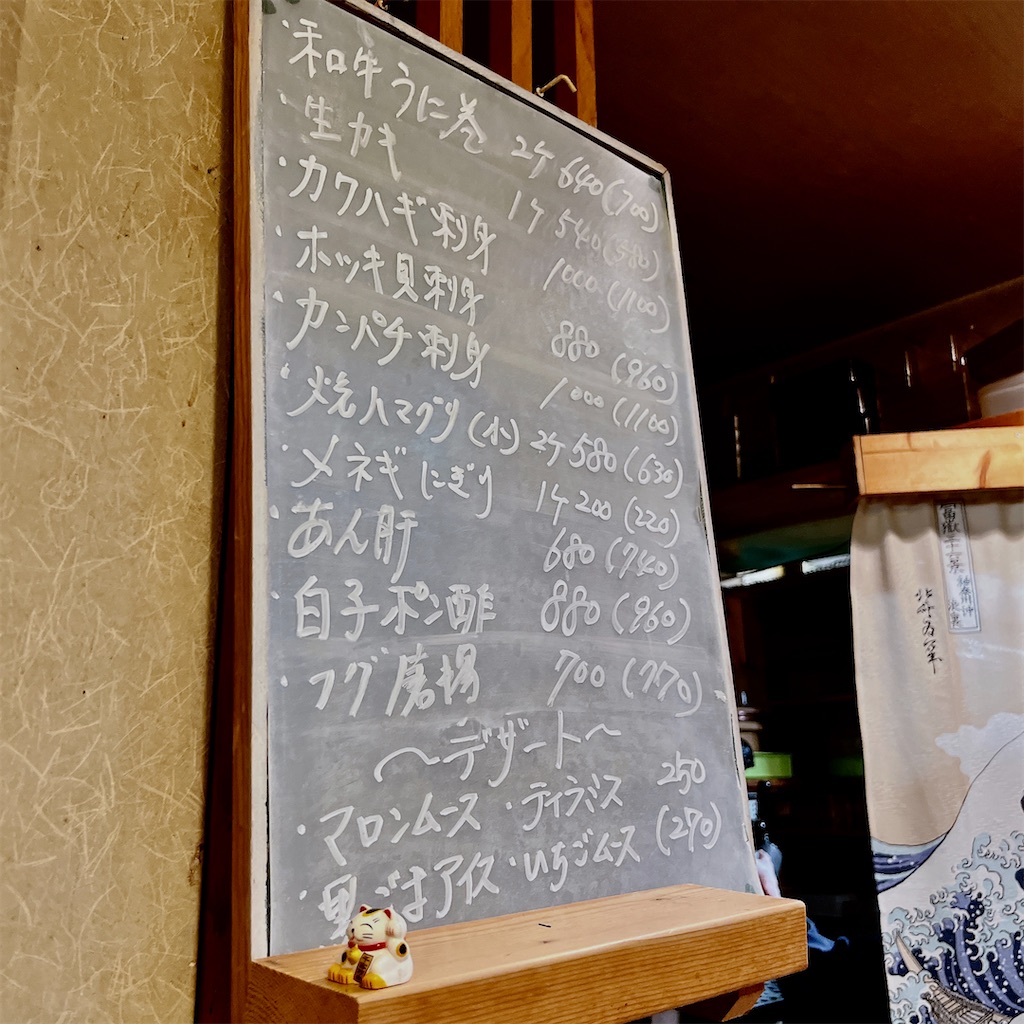 ・和牛うに巻 2ケ 640(700)
・生カキ 1ケ 540(580)
・カワハギ刺身 1000(1100)
・ホッキ貝刺身 880(960)
・カンパチ刺身 1000(1100)
・焼ハマグリ(小) 2ケ 580(630)
・メネギにぎり 1ケ 200(220)
・あん肝 680(740)
・白子ポン酢 880(960)
・フグ唐揚 700(770)
〜デザート〜
・マロンムース ・ティラミス 250
・黒ごまアイス ・いちごムース (270)
冨嶽三十六景 神奈川沖
浪裏